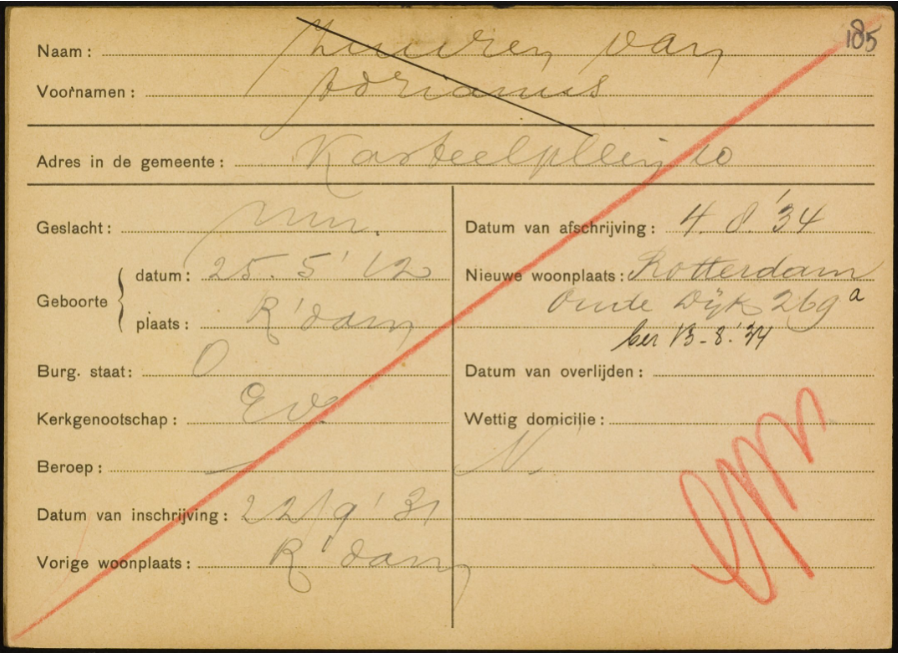 185
Naam: van
Voornamen: Adrianus
Adres in de gemeente: Kasteelplein 10
Geslacht:
Geboorte datum: 25.5'12
plaats: R'dam
Burg. staat: O
Kerkgenootschap: Eva
Beroep: —
Datum van inschrijving: 22/9'31
Vorige woonplaats: R'dam
Datum van afschrijving: 4.8.'34
Nieuwe woonplaats: Rotterdam
Oude Dijk 269a
ber 13-8.'34
Datum van overlijden:
Wettig domicilie:
N.